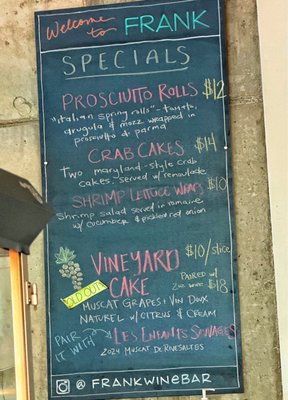 Welcome to FRANK
SPECIALS
PROSCIUTTO ROLLS $12
"italian spring rolls" - tomato,
arugula & mozz wrapped in
prosciutto di parma
CRAB CAKES $14
Two maryland-style crab
cakes, served w/ remoulade
SHRIMP LETTUCE WRAPS $10
Shrimp salad served in romaine
w/ cucumber & pickled red onion
VINEYARD CAKE $10/slice
SOLD OUT!
PAIRED w/
2oz wine $18
MUSCAT GRAPES + VIN DOUX
NATUREL w/ CITRUS & CREAM
PAIR IT WITH
LES ENFANTS SAUVAGES
2024 MUSCAT DE RIVESALTES
@ FRANKWINEBAR